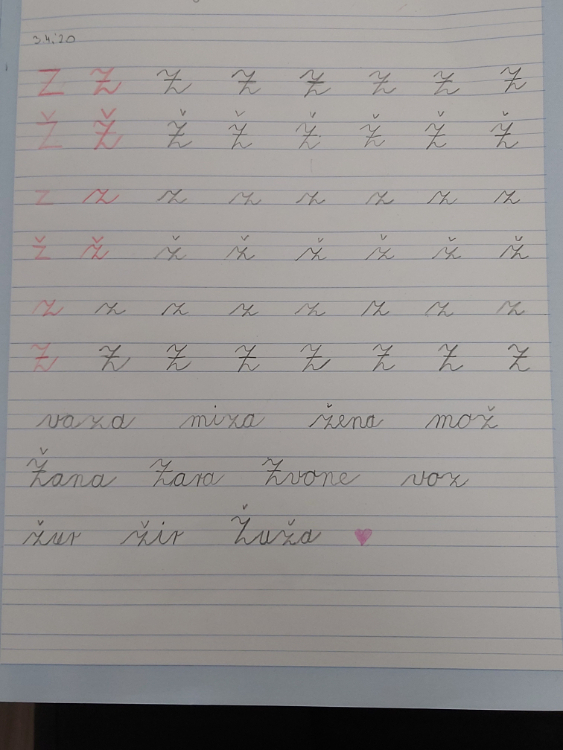 3.4.20
Z Z Z Z Z Z Z Z
Ž Ž Ž Ž Ž Ž Ž Ž
z z z z z z z z
ž ž ž ž ž ž ž ž
z z z z z z z z
Z Z Z Z Z Z Z Z
vaza miza žena mož
Žana Zara Zvone voz
žur žir Žuža